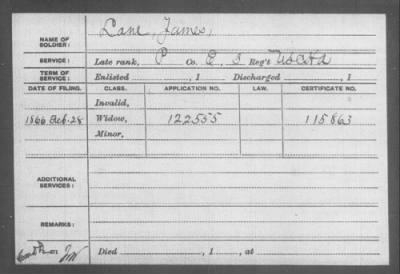 NAME OF SOLDIER: Lane, James,
SERVICE: Late rank, P Co. E, 3 Reg't US C H A
TERM OF SERVICE: Enlisted , 1 Discharged , 1
DATE OF FILING. CLASS. APPLICATION NO. LAW. CERTIFICATE NO.
Invalid,
1866 Feb. 28 Widow, 122555 115863
Minor,
ADDITIONAL SERVICES:
REMARKS:
Died , 1 , at